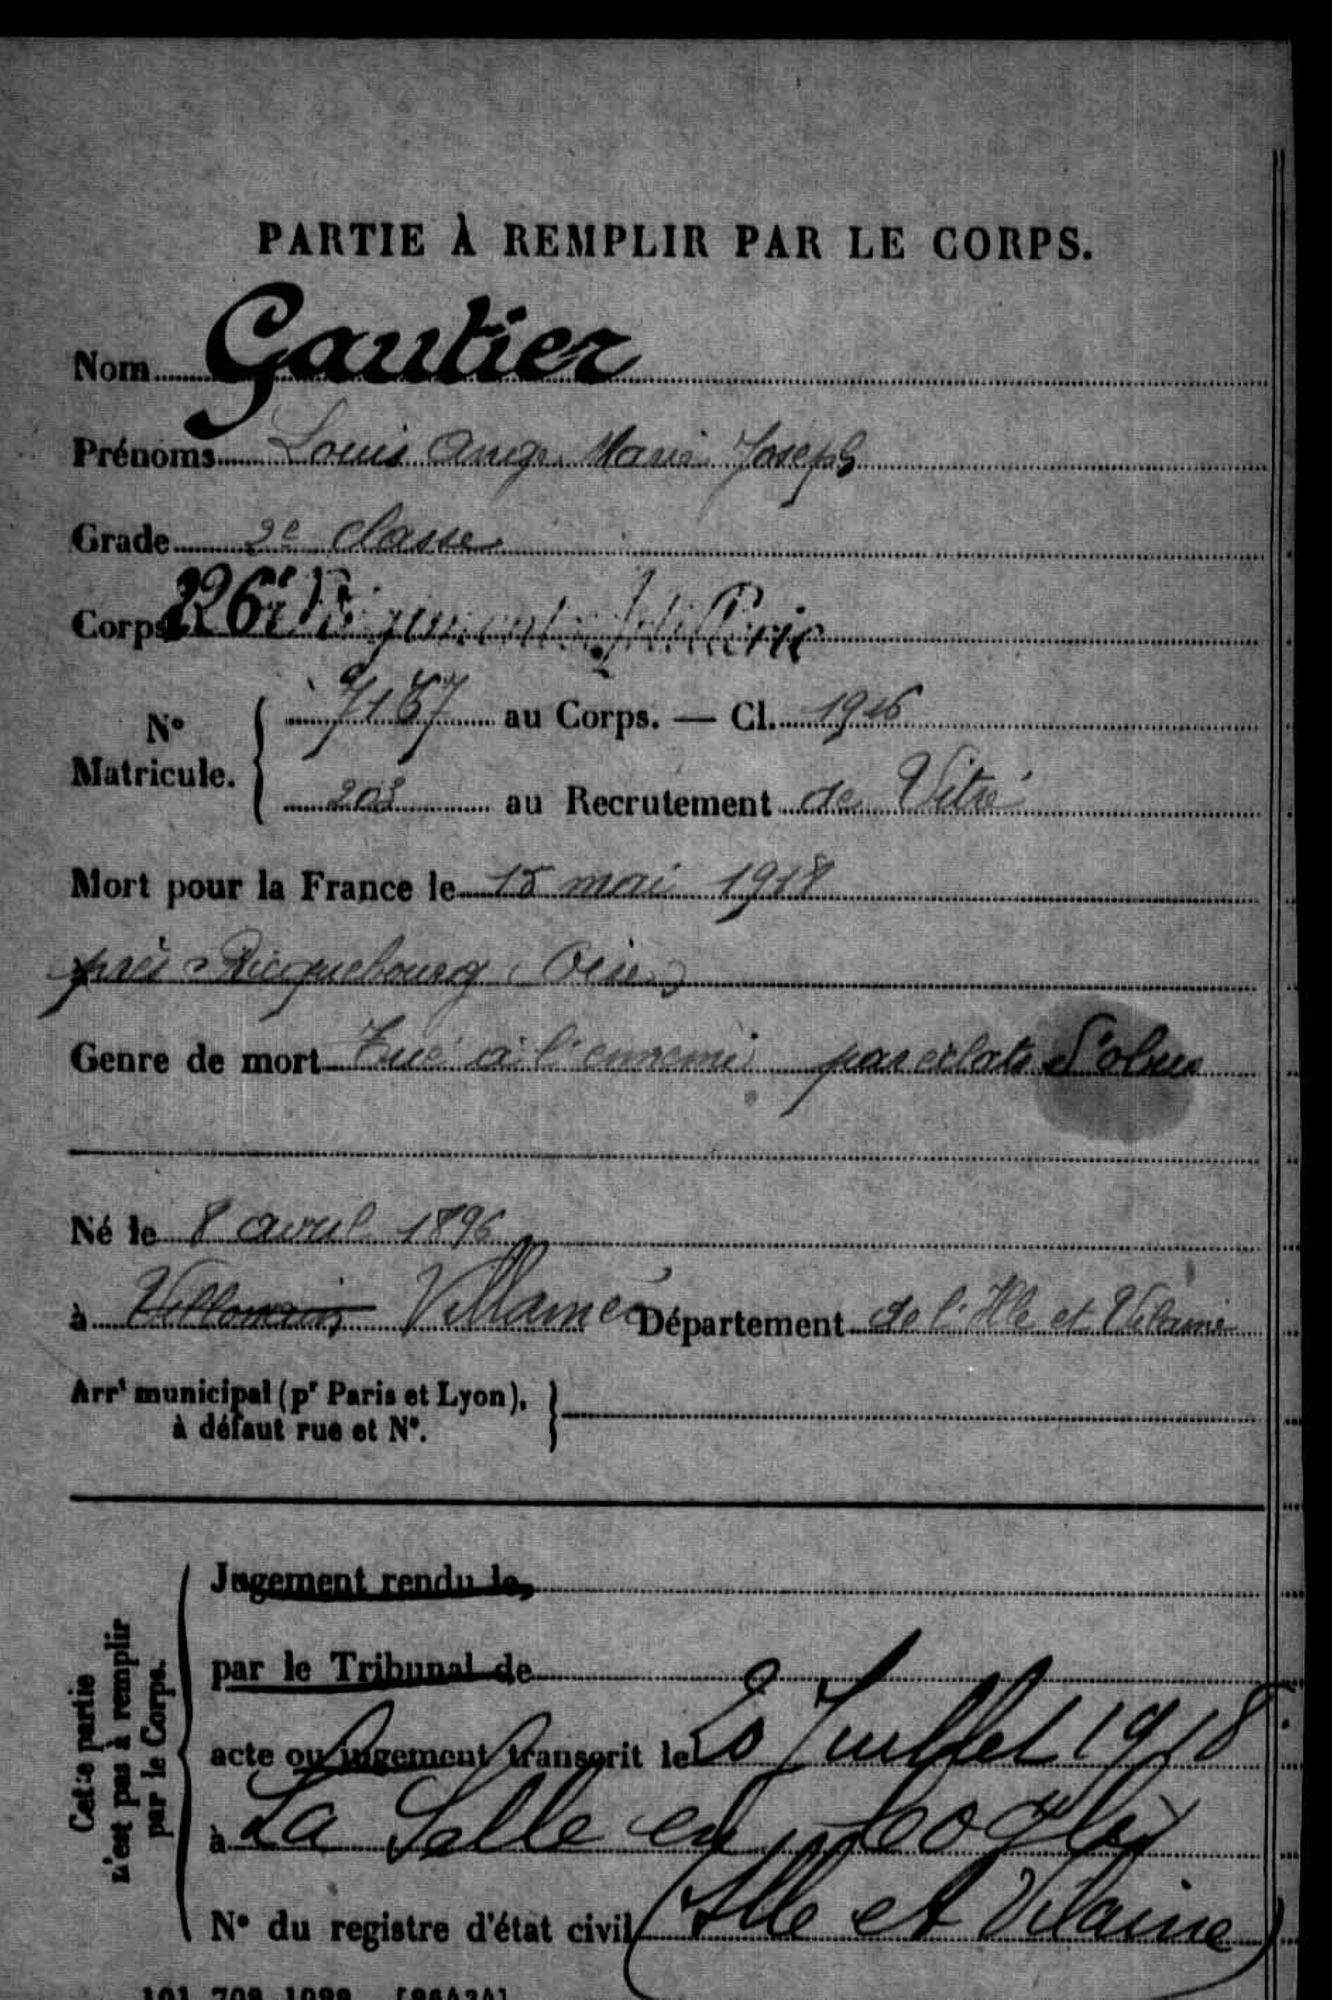 PARTIE À REMPLIR PAR LE CORPS.
Nom Gautier
Prénoms Louis Ange Marie Joseph
Grade 2e classe
Corps 226e Régiment Artillerie
N° Matricule. 7167 au Corps. — Cl. 1916
203 au Recrutement de Vitré
Mort pour la France le 15 mai 1918
près Ricquebourg (Oise)
Genre de mort Tué à l'ennemi par eclats d'obus
Né le 8 avril 1896
à Villamée Département de l'Ille et Vilaine
Arrt municipal (pr Paris et Lyon),
à défaut rue et N°.
Cette partie
n'est pas à remplir
par le Corps.
Jugement rendu le
par le Tribunal de
acte ou jugement transcrit le 20 Juillet 1918
à La Selle en Cogles
N° du registre d'état civil (Ille et Vilaine)